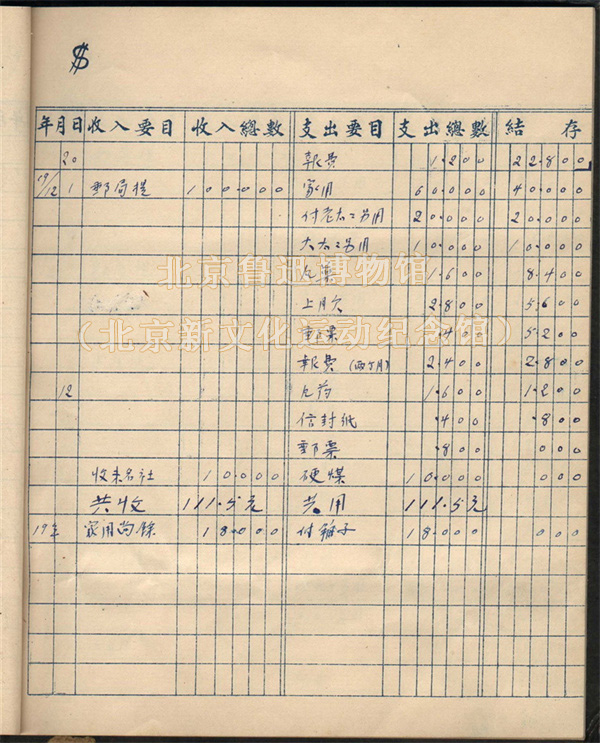 $
年月日 收入要目 收入總數 支出要目 支出總數 結存
20 報費 1.200 22.800
19/12 1 郵局提 100.000 家用 60.000 40.000
付老太二另用 20.000 20.000
大太二另用 10.000 10.000
1.600 8.400
上月欠 2.800 5.600
郵票 .400 5.200
報費(兩个月) 2.400 2.800
12 1.600 1.200
信封纸 .400 .800
郵票 .800 000
收未名社 10.000 硬煤 10.000 000
共收 111.5元 共用 111.5元
19年 家用尚餘 18.000 付 子 18.000 000
北京鲁迅博物馆
（北京新文化运动纪念馆）